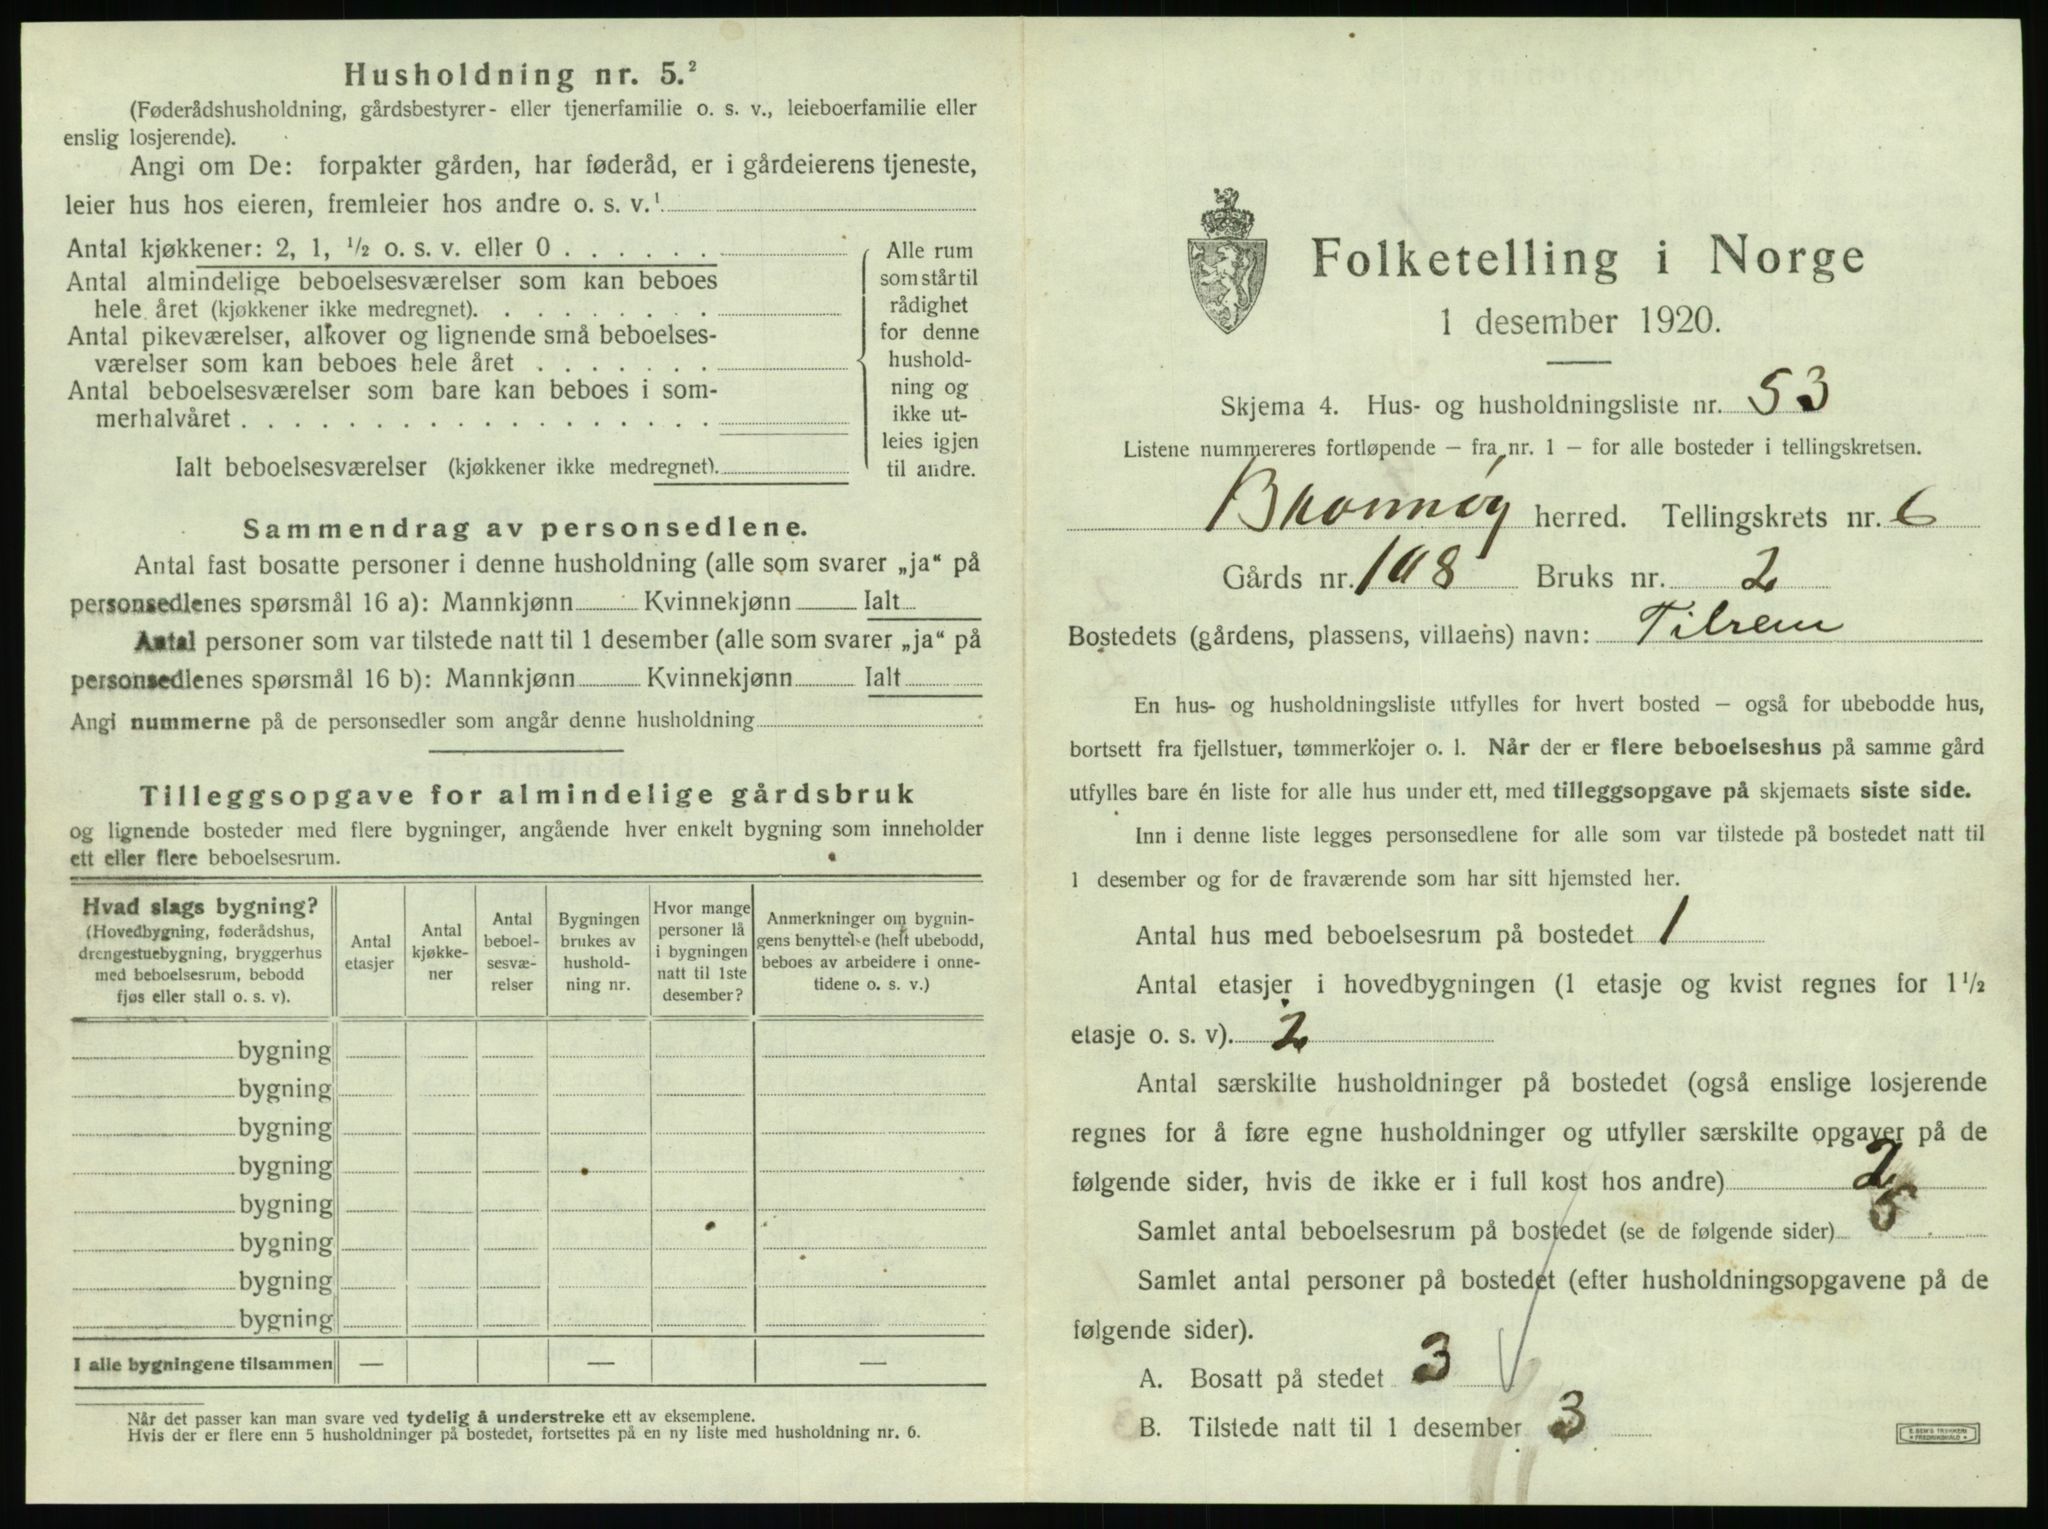 Husholdning nr. 5.²
(Føderådshusholdning, gårdsbestyrer- eller tjenerfamilie o. s. v., leieboerfamilie eller
enslig losjerende).
Angi om De: forpakter gården, har føderåd, er i gårdeierens tjeneste,
leier hus hos eieren, fremleier hos andre o. s. v.¹
Antal kjøkkener: 2, 1, ¹/₂ o. s. v. eller 0 . . . . . .
Antal almindelige beboelsesværelser som kan beboes
hele året (kjøkkener ikke medregnet). . . . . . . . .
Antal pikeværelser, alkover og lignende små beboelses-
værelser som kan beboes hele året . . . . . . .
Antal beboelsesværelser som bare kan beboes i som-
merhalvåret . . . . . . . . . . . . . . . . . .
Ialt beboelsesværelser (kjøkkener ikke medregnet).
Alle rum
som står til
rådighet
for denne
hushold-
ning og
ikke ut-
leies igjen
til andre.
Sammendrag av personsedlene.
Antal fast bosatte personer i denne husholdning (alle som svarer „ja“ på
personsedlenes spørsmål 16 a): Mannkjønn Kvinnekjønn Ialt
Antal personer som var tilstede natt til 1 desember (alle som svarer „ja“ på
personsedlenes spørsmål 16 b): Mannkjønn Kvinnekjønn Ialt
Angi nummerne på de personsedler som angår denne husholdning
Tilleggsopgave for almindelige gårdsbruk
og lignende bosteder med flere bygninger, angående hver enkelt bygning som inneholder
ett eller flere beboelsesrum.
Hvad slags bygning?
(Hovedbygning, føderådshus,
drengestuebygning, bryggerhus
med beboelsesrum, bebodd
fjøs eller stall o. s. v).
Antal
etasjer
Antal
kjøkke-
ner
Antal
beboel-
sesvæ-
relser
Bygningen
brukes av
hushold-
ning nr.
Hvor mange
personer lå
i bygningen
natt til 1ste
desember?
Anmerkninger om bygnin-
gens benyttelse (helt ubebodd,
beboes av arbeidere i onne-
tidene o. s. v.)
bygning
bygning
bygning
bygning
bygning
bygning
bygning
bygning
I alle bygningene tilsammen — — —
Når det passer kan man svare ved tydelig å understreke ett av eksemplene.
Hvis der er flere enn 5 husholdninger på bostedet, fortsettes på en ny liste med husholdning nr. 6.
Folketelling i Norge
1 desember 1920.
Skjema 4. Hus- og husholdningsliste nr. 53
Listene nummereres fortløpende – fra nr. 1 – for alle bosteder i tellingskretsen.
Brønnøy herred. Tellingskrets nr. 6
Gårds nr. 108 Bruks nr. 2
Bostedets (gårdens, plassens, villaens) navn: Tilrem
En hus- og husholdningsliste utfylles for hvert bosted – også for ubebodde hus,
bortsett fra fjellstuer, tømmerkojer o. l. Når der er flere beboelseshus på samme gård
utfylles bare én liste for alle hus under ett, med tilleggsopgave på skjemaets siste side.
Inn i denne liste legges personsedlene for alle som var tilstede på bostedet natt til
1 desember og for de fraværende som har sitt hjemsted her.
Antal hus med beboelsesrum på bostedet 1
Antal etasjer i hovedbygningen (1 etasje og kvist regnes for 1 ¹/₂
etasje o. s. v). 2
Antal særskilte husholdninger på bostedet (også enslige losjerende
regnes for å føre egne husholdninger og utfyller særskilte opgaver på de
følgende sider, hvis de ikke er i full kost hos andre) 2
Samlet antal beboelsesrum på bostedet (se de følgende sider)
Samlet antal personer på bostedet (efter husholdningsopgavene på de
følgende sider).
A. Bosatt på stedet 3
B. Tilstede natt til 1 desember 3
E. SEM'S TRYKKERI
FREDRIKSHALD